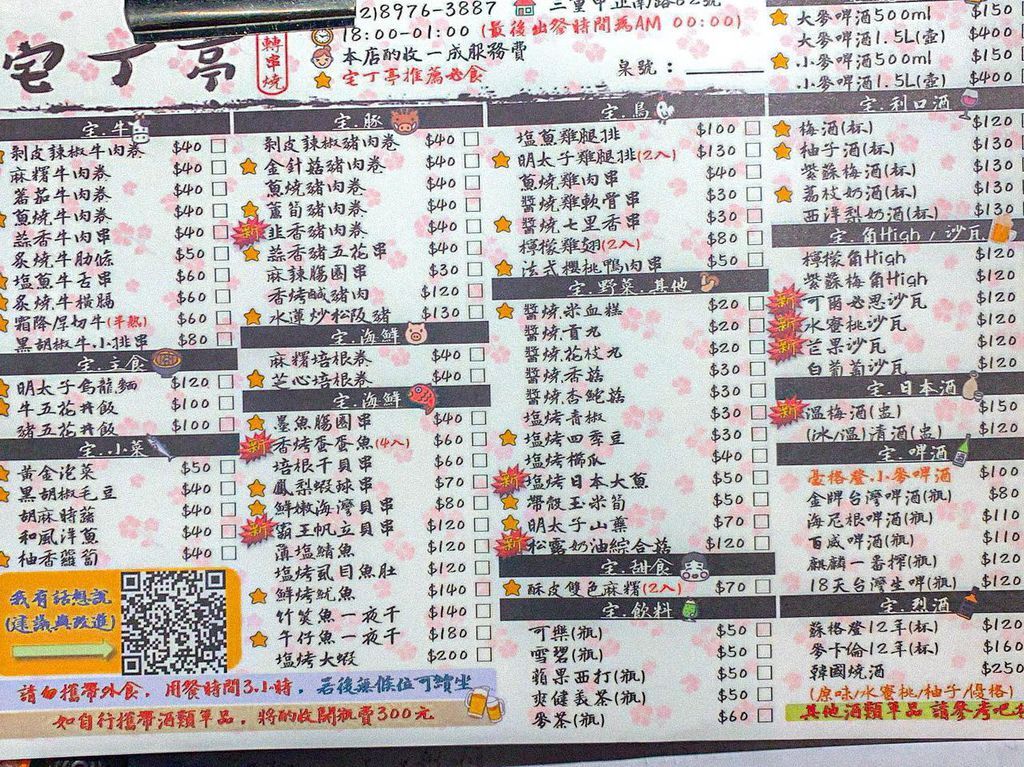 宅丁亭
轉串燒
2)8976-3887
三重中正南路62號
18:00-01:00 (最後出餐時間為AM 00:00)
本店酌收一成服務費
宅丁亭推薦必食
桌號：
宅.牛
剝皮辣椒牛肉卷 $40
麻糬牛肉卷 $40
蕃茄牛肉卷 $40
蔥燒牛肉卷 $40
蒜香牛肉串 $40
炙燒牛肋條 $50
塩蔥牛舌串 $60
炙燒牛橫膈 $60
霜降厚切牛(半熟) $60
黑胡椒牛小排串 $80
宅.主食
明太子烏龍麵 $120
牛五花丼飯 $100
豬五花丼飯 $100
宅.小菜
黃金泡菜 $50
黑胡椒毛豆 $40
胡麻時蔬 $40
和風洋蔥 $40
柚香蘿蔔 $40
我有話想說
(建議與改進)
宅.豚
剝皮辣椒豬肉卷 $40
金針菇豬肉卷 $40
蔥燒豬肉卷 $40
蘆筍豬肉卷 $40
新 韭香豬肉卷 $40
蒜香豬五花串 $50
麻辣腸圈串 $30
香烤鹹豬肉 $120
水蓮炒松阪豬 $130
宅.海鮮
麻糬培根卷 $40
芒心培根卷 $40
宅.海鮮
墨魚腸圈串 $40
新 香烤蛋蛋魚(4入) $60
培根干貝串 $60
鳳梨蝦球串 $70
鮮嫩海灣貝串 $80
新 霸王帆立貝串 $120
薄塩鯖魚 $120
塩烤虱目魚肚 $120
鮮烤魷魚 $140
竹筴魚一夜干 $140
午仔魚一夜干 $180
塩烤大蝦 $200
宅.鳥
塩蔥雞腿排 $100
明太子雞腿排(2入) $130
蔥燒雞肉串 $40
醬燒雞軟骨串 $40
醬燒七里香串 $40
檸檬雞翅(2入) $80
法式櫻桃鴨肉串 $50
宅.野菜.其他
醬燒米血糕 $20
醬燒貢丸 $20
醬燒花枝丸 $20
醬燒香菇 $30
醬燒杏鮑菇 $30
塩烤青椒 $30
塩烤四季豆 $30
塩烤櫛瓜 $50
新 塩烤日本大蔥 $50
帶殼玉米筍 $50
明太子山藥 $70
新 松露奶油綜合菇 $120
宅.甜食
酥皮雙色麻糬(2入) $70
宅.飲料
可樂(瓶) $50
雪碧(瓶) $50
蘋果西打(瓶) $50
爽健美茶(瓶) $50
麥茶(瓶) $60
大麥啤酒500ml $150
大麥啤酒1.5L(壺) $400
小麥啤酒500ml $150
小麥啤酒1.5L(壺) $400
宅.利口酒
梅酒(杯) $120
柚子酒(杯) $130
紫蘇梅酒(杯) $130
荔枝奶酒(杯) $130
西洋梨奶酒(杯) $130
宅.角High / 沙瓦
檸檬角High $120
紫蘇梅角High $120
新 可爾必思沙瓦 $120
新 水蜜桃沙瓦 $120
新 芒果沙瓦 $120
白葡萄沙瓦 $120
宅.日本酒
新 溫梅酒(盅) $150
(冰/溫)清酒(盅) $120
宅.啤酒
豪格登.小麥啤酒 $100
金牌台灣啤酒(瓶) $80
海尼根啤酒(瓶) $110
百威啤酒(瓶) $110
麒麟一番搾(瓶) $120
18天台灣生啤(瓶) $120
宅.烈酒
蘇格登12年(杯) $120
麥卡倫12年(杯) $160
韓國燒酒 $250
(原味/水蜜桃/柚子/優格)
其他酒類單品 請參考吧
請勿攜帶外食，用餐時間3.小時，若後無候位可續坐
如自行攜帶酒類單品，將酌收開瓶費300元